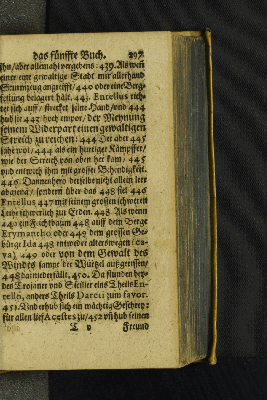 das fünffte Buch. 297
ihn/aber allemahl vergebens: 439. Als wenn
einer eine gewaltige Stadt mit allerhand
Sturmzeug angreifft/440 oder eine Berg-
festung belagert hält. 443. Entellus rich-
tet sich auff/ strecket seine Hand/ und 444
hub sie 443 hoch empor/ der Meynung
seinem Widerpart einen gewaltigen
Streich zu reichen: 444 Der aber 445
sahe wol/ 444 als ein hurtiger Kämpffer/
wie der Streich von oben her kam/ 445
und entwich ihm mit grosser Behendigkeit.
446. Dannenhero derselbe nicht allein leer
abgieng/ sondern über das 448 fiel 446
Entellus 447 mit seinem grossen schweren
Leibe schwerlich zur Erden. 448 Als wenn
442 ein Fichtbaum 448 auff dem Berge
Erymantho oder 449 dem grossen Ge-
bürge Ida 448 entweder alters wegen (ca-
va) 449 oder von dem Gewalt des
Windes sampt der Wurtzel außgerissen/
448 darniederfällt. 450. Da stunden bey-
des Trojaner und Sicilier eins Theils En-
tello, anders Theils Dareti zum favor.
451. Und erhub sich ein mächtig Geschrey:
für allen lieff Acestes zu/ 452 uñ hub seinen
T v Freund